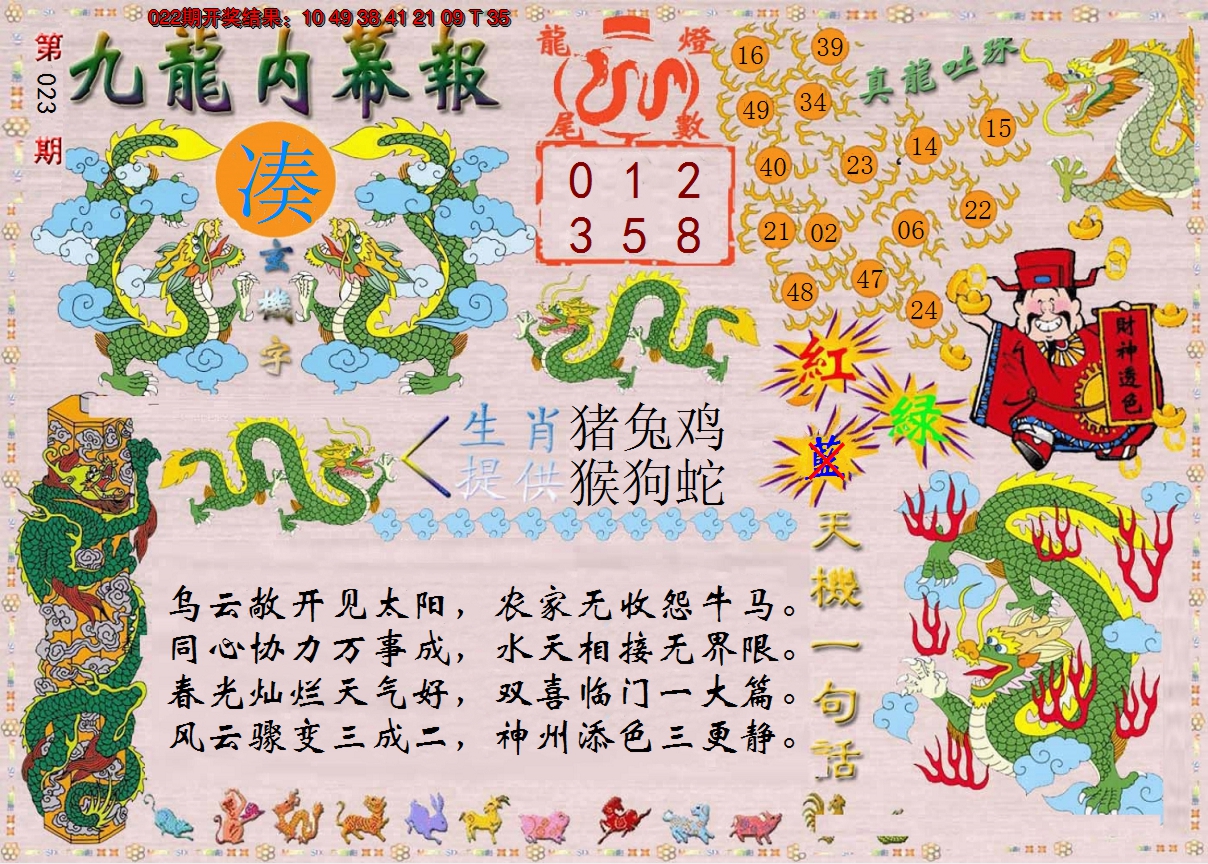 022期开奖结果：10 49 38 41 21 09 T 35
第023期
九龍内幕報
湊
玄機字
龍燈尾數
0 1 2
3 5 8
真龍吐珠
16 39
49 34
14 15
40 23
22
21 02 06
48 47
24
財神透色
紅
綠
藍
生肖 猪兔鸡
提供 猴狗蛇
天機一句話
乌云敞开见太阳，农家无收怨牛马。
同心协力万事成，水天相接无界限。
春光灿烂天气好，双喜临门一大篇。
风云骤变三成二，神州添色三更静。